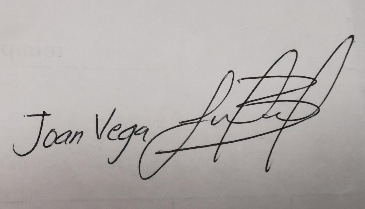 Joan Vega